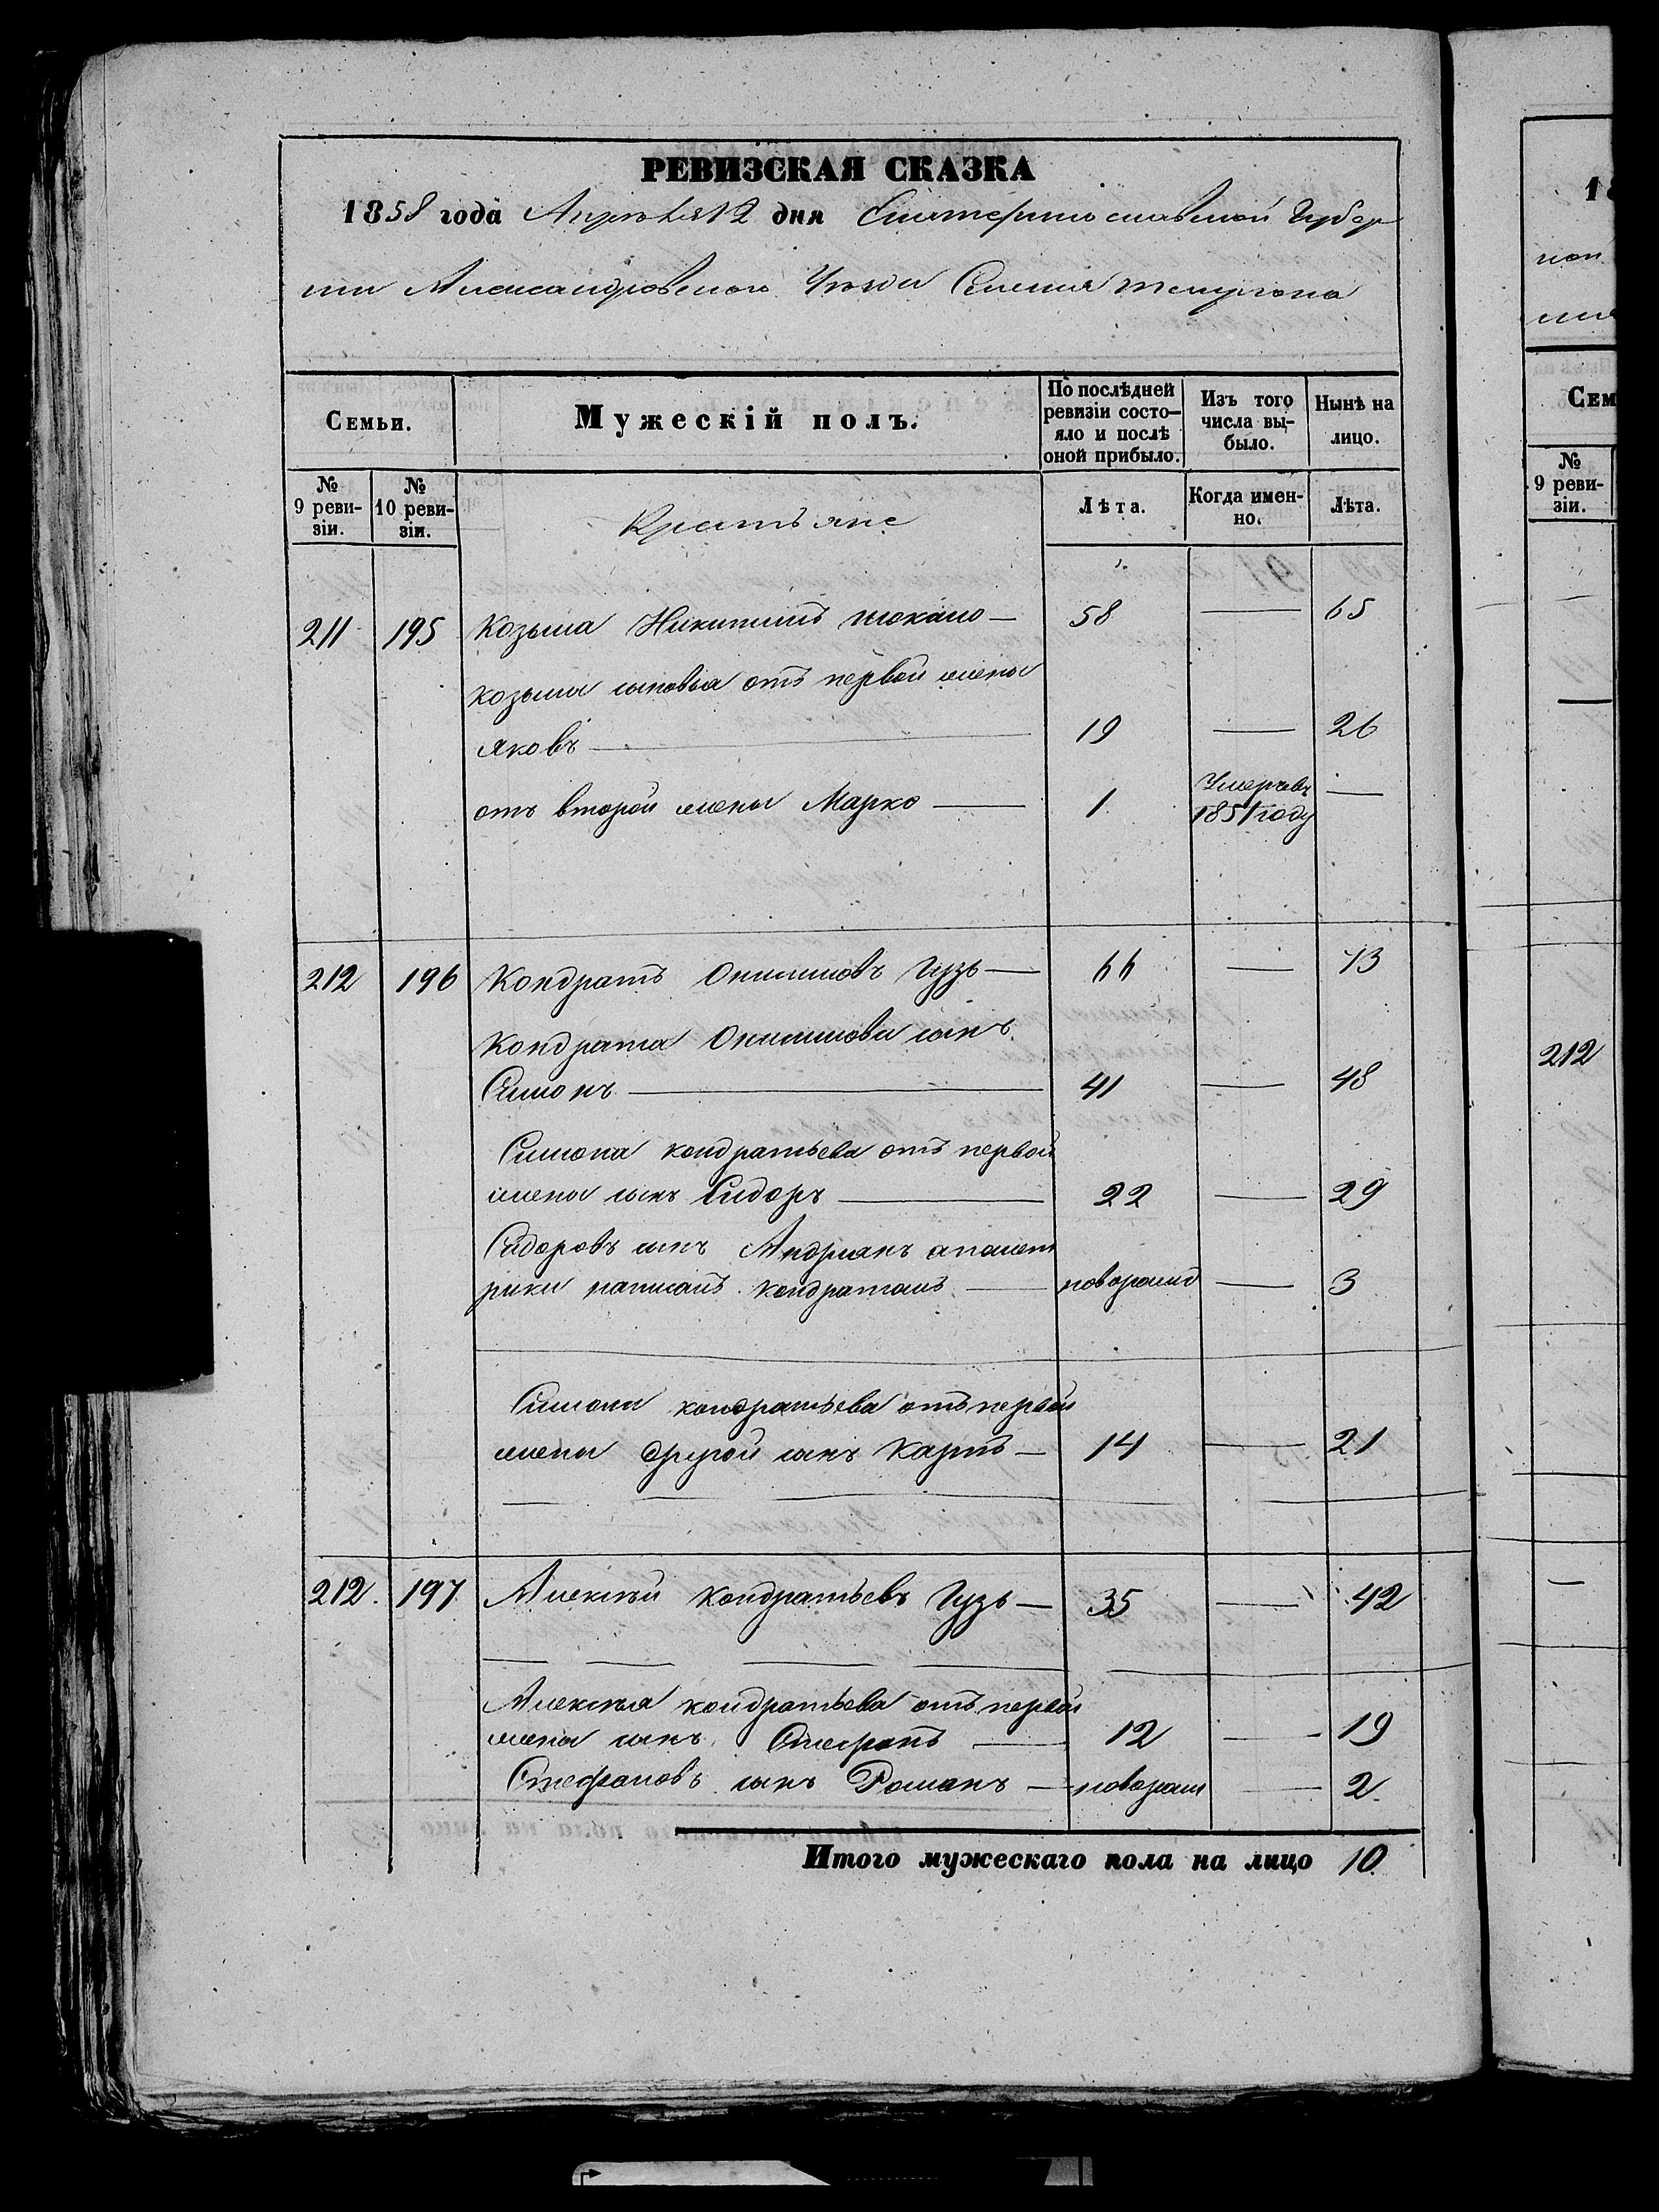 РЕВИЗСКАЯ СКАЗКА
1858 года Апрѣля 12 дня Екатеринославской Губер
нiи Александровскаго Уѣзда Селенiя
Семьи.
Мужескій полъ.
По послѣдней ревизіи состо-
яло и послѣ
оной прибыло.
Изъ того
числа вы-
было.
Нынѣ на
лицо.
№
9 реви-
зіи.
№
10 реви-
зіи.
Крестьяне
Лѣта.
Когда имен-
но.
Лѣта.
211 195 Козьма Никитинъ — 58 — 65
Козьмы сыновья отъ первой жены
Яковъ — 19 — 26
отъ второй жены Марко — 1 Умеръ въ 1851 году —
212 196 Кондратъ Онисимовъ Гузь — 66 — 73
Кондрата Онисимова сынъ
Симонъ — 41 — 48
Симона Кондратьева отъ первой
жены сынъ Сидоръ — 22 — 29
Сидоровъ сынъ Андрiянъ а по мет
рики написанъ Кондратомъ — новорожд — 3
Симона Кондратьева отъ первой
жены другой сынъ Карпъ — 14 — 21
212. 197 Алексѣй Кондратьевъ Гузь — 35 — 42
Алексѣя Кондратьева отъ первой
жены сынъ Стефанъ — 12 — 19
Стефановъ сынъ Романъ — новорожд — 2.
Итого мужескаго пола на лицо 10.
18
Сем
№
9 реви-
зіи.
212